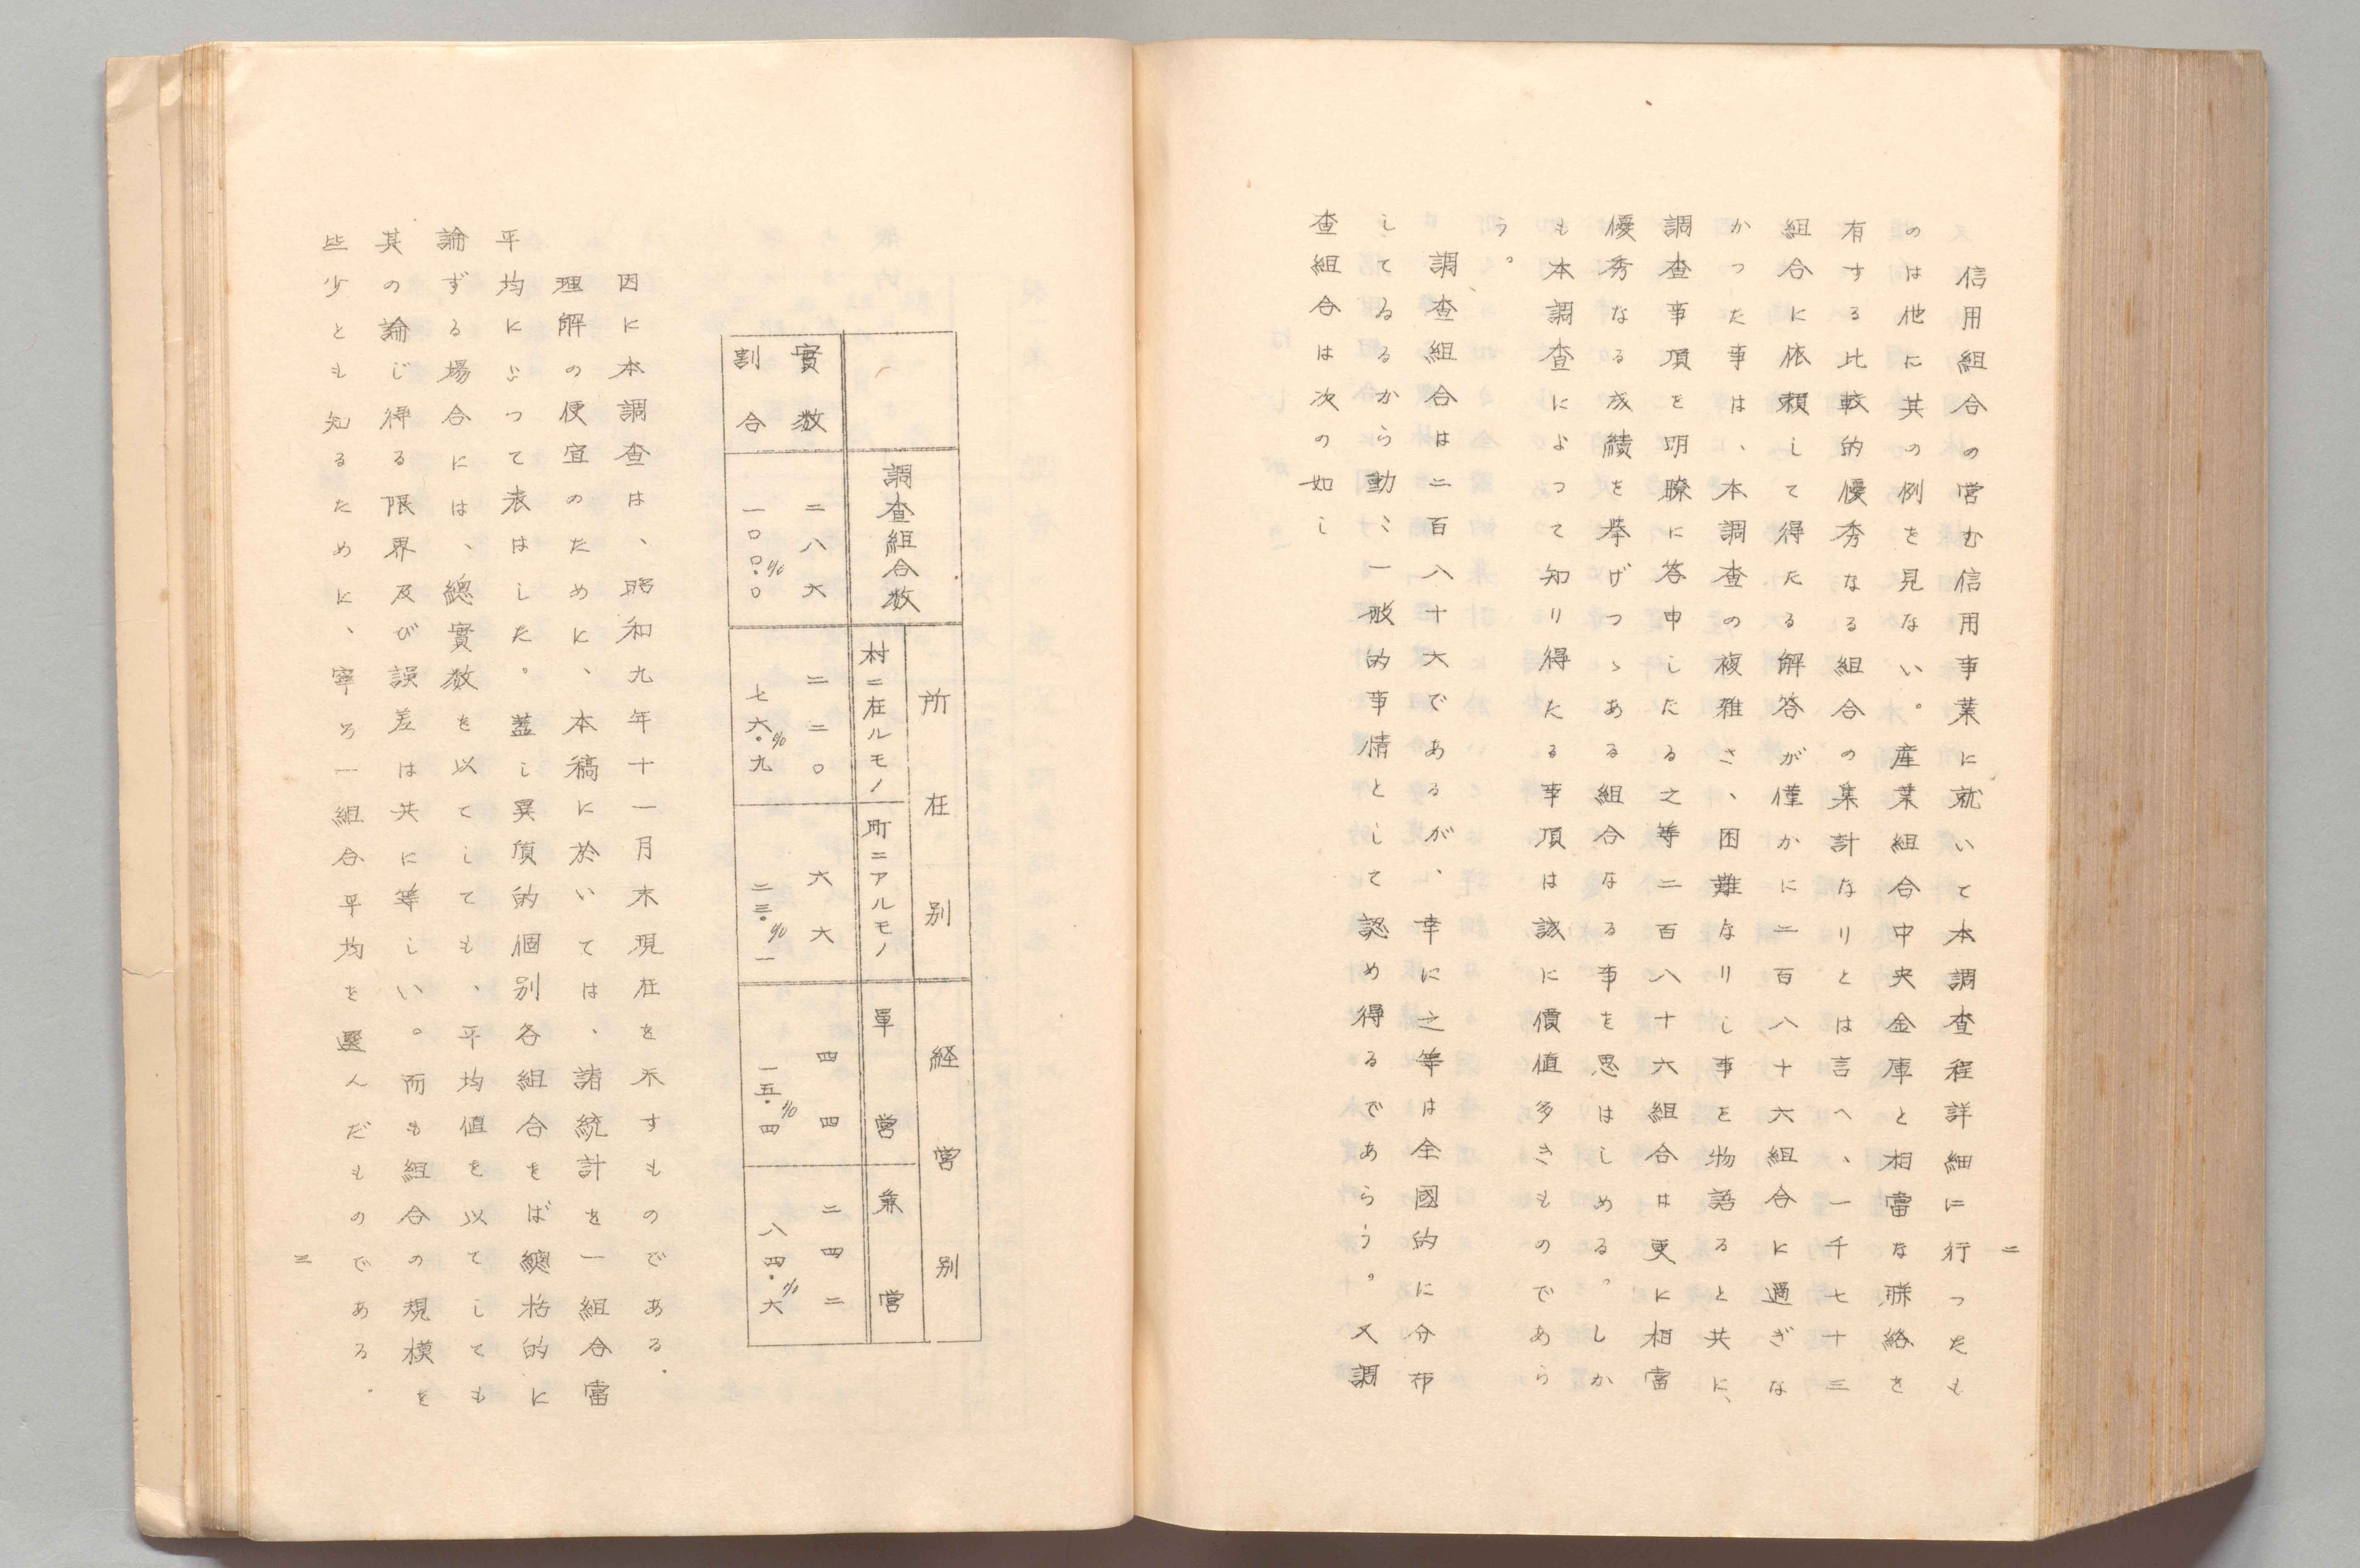 二
信用組合の営む信用事業に就いて本調査程詳細に行つたも
のは他に其の例を見ない。産業組合中央金庫と相當な聯絡を
有する比較的優秀なる組合の集計なりとは言へ、一千七十三
組合に依頼して得たる解答が僅かに二百八十六組合に過ぎな
かつた事は、本調査の複雑さ、困難なりし事を物語ると共に、
調査事項を明瞭に答申したる之等二百八十六組合は更に相當
優秀なる成績を挙げつゝある組合なる事を思はしめる。しか
も本調査によつて知り得たる事項は誠に價値多きものであら
う。
調査組合は二百八十六であるが、幸に之等は全國的に分布
してゐるから動〻一般的事情として認め得るであらう。又調
査組合は次の如し
調査組合数
所在別
経営別
村ニ在ルモノ
町ニアルモノ
單営
兼営
實数
二八六
二二〇
六六
四四
二四二
割合
一〇〇.〇%
七六.九%
二三.一%
一五.四%
八四.六%
因に本調査は、昭和九年十一月末現在を示すものである.
理解の便宜のために、本稿に於いては、諸統計を一組合當
平均によつて表はした。蓋し異質的個別各組合をば總括的に
論ずる場合には、總實数を以てしても、平均値を以てしても
其の論じ得る限界及び誤差は共に等しい。而も組合の規模を
些少とも知るために、寧ろ一組合平均を選んだものである.
三